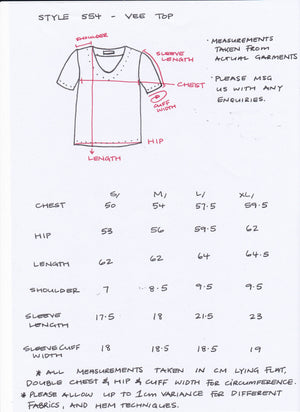 STYLE 554 - VEE TOP
SHOULDER
SLEEVE LENGTH
CHEST
CUFF WIDTH
HIP
LENGTH
· MEASUREMENTS
TAKEN FROM
ACTUAL GARMENTS
· PLEASE MSG
US WITH ANY
ENQUIRIES.
S/ M/ L/ XL/
CHEST 50 54 57.5 59.5
HIP 53 56 59.5 62
LENGTH 62 62 64 64.5
SHOULDER 7 8.5 9.5 9.5
SLEEVE LENGTH 17.5 18 21.5 23
SLEEVE CUFF WIDTH 18 18.5 18.5 19
* ALL MEASUREMENTS TAKEN IN CM LYING FLAT,
DOUBLE CHEST & HIP & CUFF WIDTH FOR CIRCUMFERENCE.
* PLEASE ALLOW UP TO 1CM VARIANCE FOR DIFFERENT
FABRICS, AND HEM TECHNIQUES.